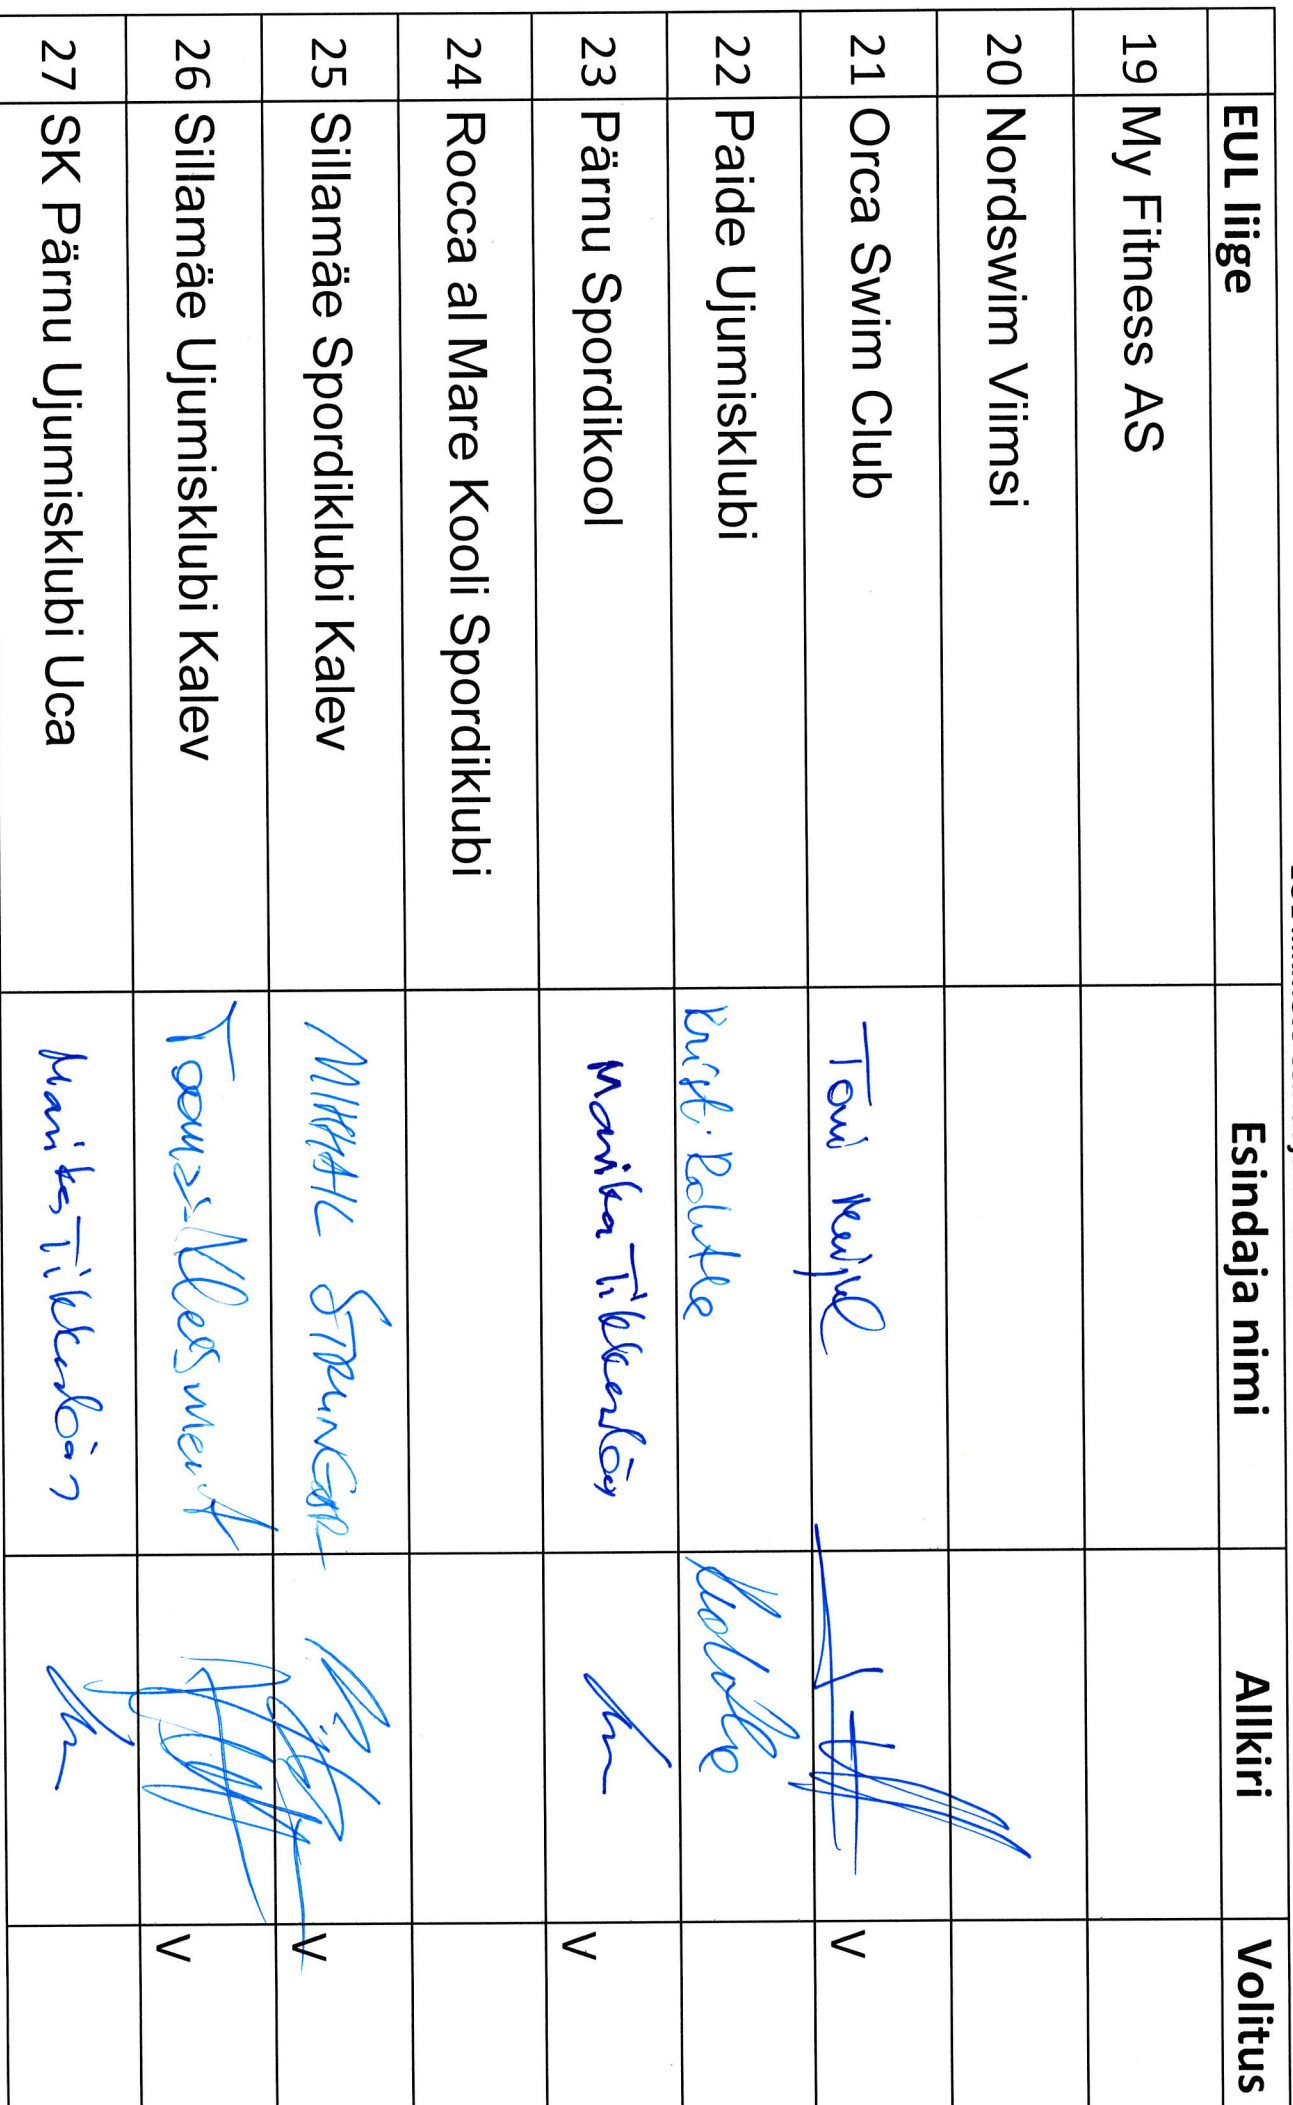 EUL liige Esindaja nimi Allkiri Volitus
19 My Fitness AS
20 Nordswim Viimsi
21 Orca Swim Club Toni Meijel V
22 Paide Ujumisklubi Kristi Rohtla
23 Pärnu Spordikool Marika Tikkerbär V
24 Rocca al Mare Kooli Spordiklubi
25 Sillamäe Spordiklubi Kalev MIHHAIL STRUNGER V
26 Sillamäe Ujumisklubi Kalev Toomas Klesment V
27 SK Pärnu Ujumisklubi Uca Marika Tikkerbär